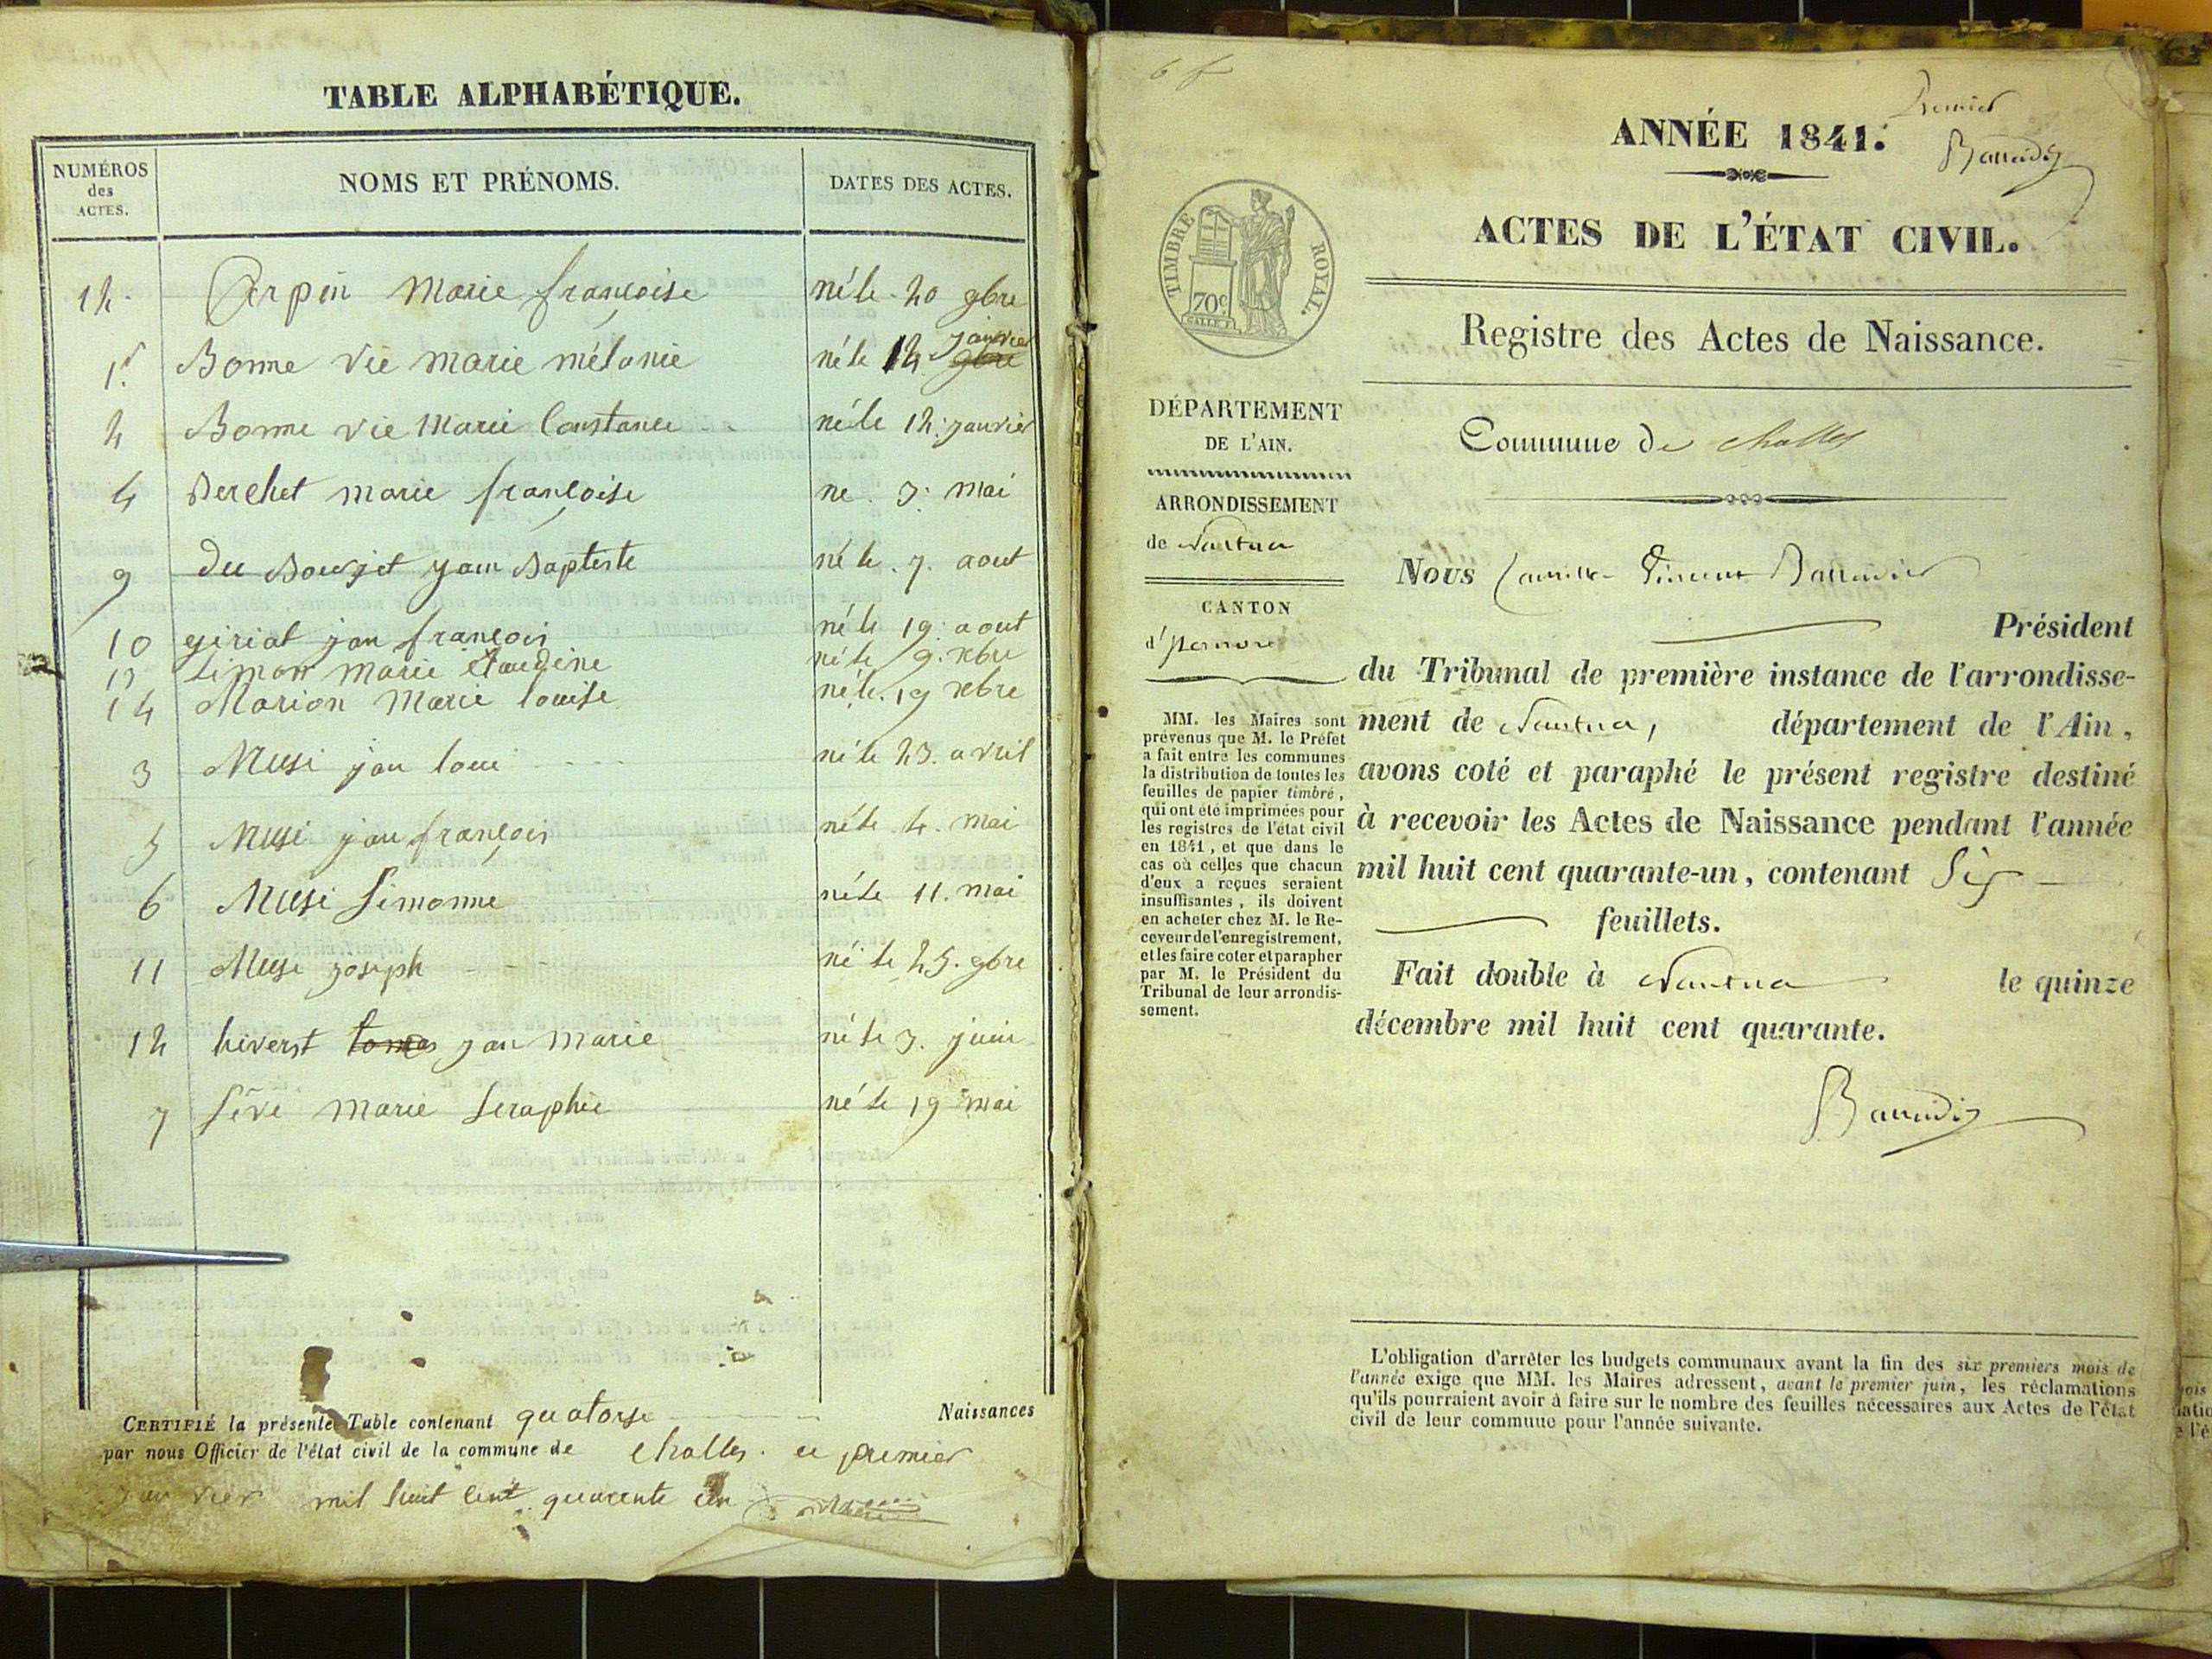 TABLE ALPHABÉTIQUE.
NUMÉROS des ACTES. NOMS ET PRÉNOMS. DATES DES ACTES.
12 Arpin marie françoise né le 20 9bre
1r Bonne vie marie mélanie né le 12 janvier 9bre
2 Bonne vie Marie Constance né le 12 janvier
4 Berchet marie françoise ne 3 mai
9 du Bourget jean Baptiste né le 7. aout
10 giriat jan françois né le 19 aout
13 Limon marie Claudine né le 9. xbre
14 Marion Marie louise né le 19 xbre
3 Musi jan loui né le 23. avril
5 Musi jan françois né le 4. mai
6 Musi Simonne né le 11. mai
11 Musi joseph né le 25. 9bre
12 jan marie né le 3. juin
7 Séve marie Seraphie né le 19 mai
CERTIFIÉ la présente Table contenant quatorse Naissances
par nous Officier de l'état civil de la commune de challes ce premier
janvier mil huit cent quarente un
6 f
Premier
ANNÉE 1841.
ACTES DE L'ÉTAT CIVIL.
TIMBRE ROYAL.
70c
Registre des Actes de Naissance.
DÉPARTEMENT
DE L'AIN.
ARRONDISSEMENT
de Nantua
CANTON
d'Izernore
MM. les Maires sont
prévenus que M. le Préfet
a fait entre les communes
la distribution de toutes les
feuilles de papier timbré,
qui ont été imprimées pour
les registres de l'état civil
en 1841, et que dans le
cas où celles que chacun
d'eux a reçues seraient
insuffisantes, ils doivent
en acheter chez M. le Re-
ceveur de l'enregistrement,
et les faire coter et parapher
par M. le Président du
Tribunal de leur arrondis-
sement.
Commune de challes
Nous Camille Vincent
Président
du Tribunal de première instance de l'arrondisse-
ment de Nantua, département de l'Ain,
avons coté et paraphé le présent registre destiné
à recevoir les Actes de Naissance pendant l'année
mil huit cent quarante-un, contenant Six
feuillets.
Fait double à Nantua le quinze
décembre mil huit cent quarante.
L'obligation d'arrêter les budgets communaux avant la fin des six premiers mois de
l'année exige que MM. les Maires adressent, avant le premier juin, les réclamations
qu'ils pourraient avoir à faire sur le nombre des feuilles nécessaires aux Actes de l'état
civil de leur commune pour l'année suivante.